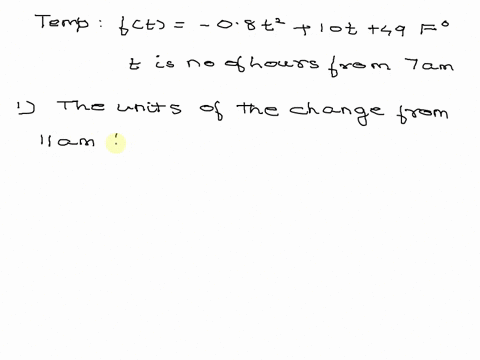 Temp: f(t) = -0.8t² + 10t + 49 F°
t is no of hours from 7am
1) The units of the change from
11am :